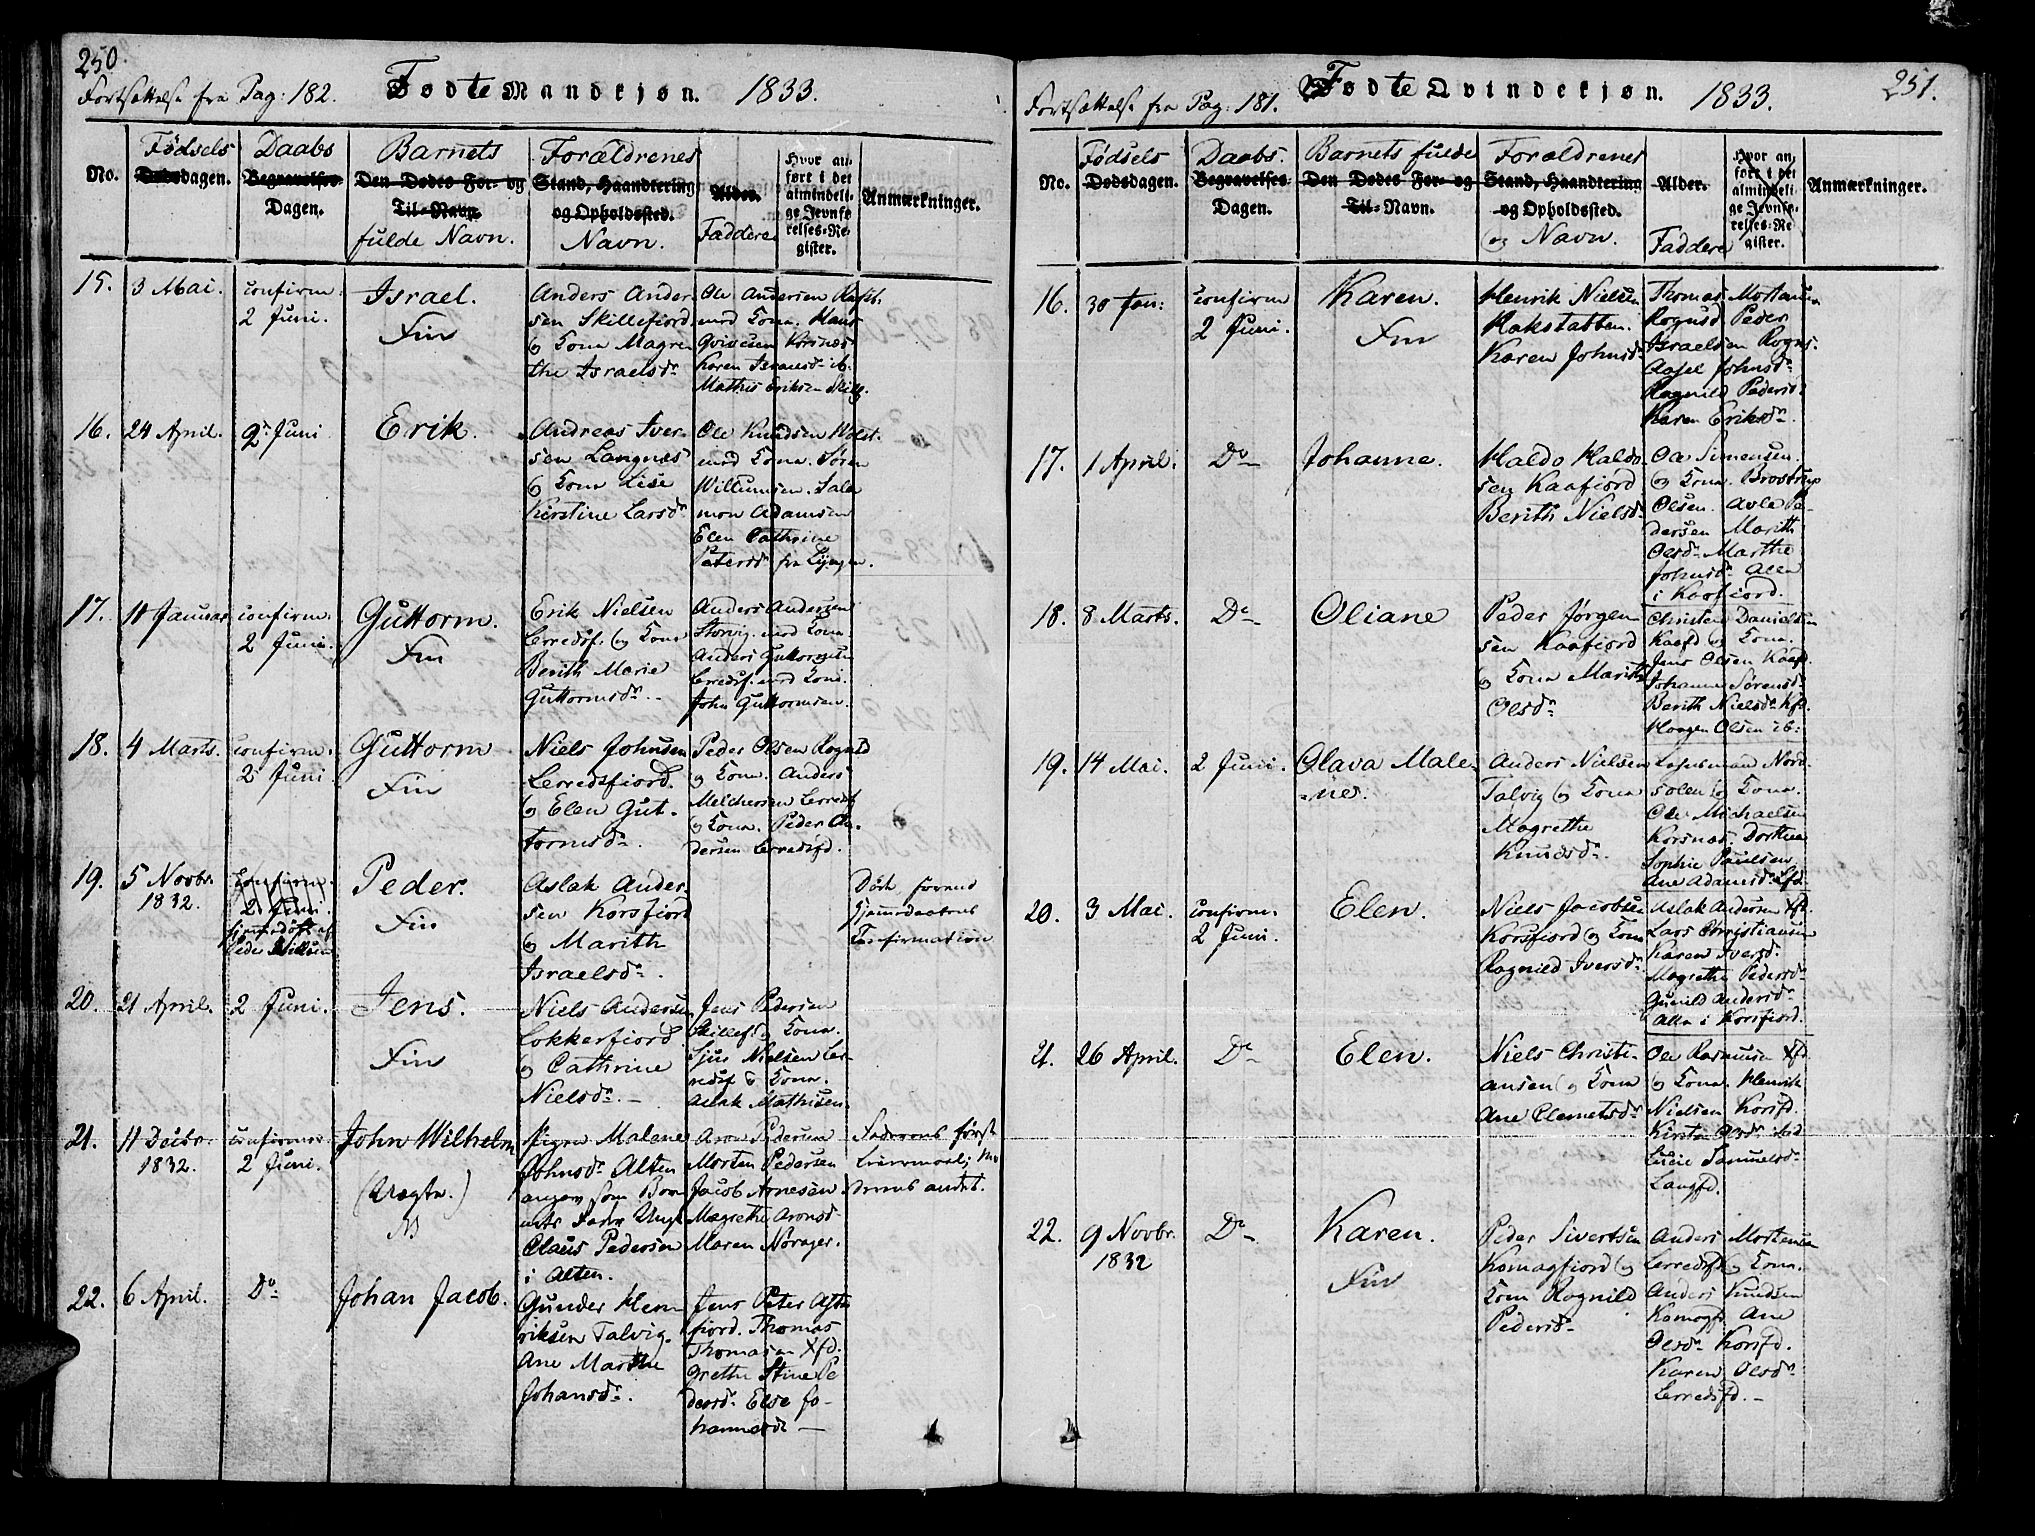 250.
Fortsættelse fra Pag: 182. Fødte Mandkjøn. 1833.
No.
Fødsels
Dødsdagen.
Daabs
Begravelses-
Dagen.
Barnets
Den Dødes For- og
Til-Navn.
fulde Navn.
Forældrenes
Stand, Haandtering
og Opholdssted.
Navn.
Alder.
Faddere
Hvor an-
ført i det
almindeli-
ge Jevnfø-
relses-Re-
gister.
Anmærkninger.
15. 3 Mai.
confirm.
2 Juni.
Israel.
Fin
Anders Ander-
sen Skillefiord
og Kona Magre-
the Israelsdr
Ole Andersen
med Kona. Hans
Korsnæs
Karen Israelsdr ib.
Mathis Eriksen Skillf.
16. 24 April. 2 Juni
Erik.
Andreas Iver-
sen Langnæs
og Kona Lise
Kirstine Larsdr
Ole Knudsen
med Kona. Søren
Willumsen. Salo-
mon Adamsen
Elen Cathrine
Petersdr fra Lyngen.
17. 11 Januar
confirm.
2 Juni.
Guttorm.
Fin
Erik Nielsen
Lerredsf. og Kona
Berith Marie
Guttormsdr. -
Anders Andersen
Storvig. med Kona
Anders Guttormsen
Lerredsf. med Kona.
John Guttormsen.
18. 4 Marts.
confirm.
2 Juni.
Guttorm
Fin
Niels Johnsen
Lerredsfiord.
og Elen Gut-
tormsdr.
Peder Olsen Rognsd
og Kona. Anders
Melchersen Lerredsf
og Kona. Peder An-
dersen Lerredsfd.
19. 5 Novbr.
1832.
confirm.
2 Juni.
hjemdøbt af
Peder Nielsen
Peder.
Fin
Aslak Ander-
sen Korsfiord
og Marith
Israelsdr.
Død forend
Hjemmedaabens
Confirmation
20. 21 April. 2 Juni.
Jens.
Fin
Niels Andersen
Lokkerfiord.
og Cathrine
Nielsdr. -
Jens Pedersen
Skillef. og Kona.
Nielsen Ler-
redsf og Kona.
Aslak Mathisen.
21. 11 Decbr.
1832.
confirmer.
2 Juni.
John Wilhelm
(Uægte.)
Malene
Johnsdr Alten
angav som Bar-
nets Fader Ungk
Claus Pedersen
i Alten.
Aron Pedersen
Morten Pedersen
Jacob Arnesen
Magrethe Aronsdr
Maren Nørager.
Faderens først
Leiermaal; Mo-
derens andet.
22. 6 April. Do
Johan Jacob.
Gunder Hen-
riksen Talvig.
Ane Marthe
Johansdr.
Jens Peter
fiord. Thomas
Thomasen Kfd.
Grethe Stine Pe
dersdr. Else Jo-
hannesdr -
251.
Fortsættelse fra Pag: 181. Fødte Qvindekjøn. 1833.
No.
Fødsels
Dødsdagen.
Daabs.
Begravelses-
Dagen.
Barnets fulde
Den Dødes For- og
Til-Navn.
Forældrenes
Stand, Haandtering
og Opholdssted.
og Navn.
Alder.
Faddere
Hvor an-
ført i det
almindeli-
ge Jevnfø-
relses-Re-
gister.
Anmærkninger.
16. 30 Jan:
confirm
2 Juni.
Karen.
Fin
Henrik Nielsen
Hakstabben.
Karen Johnsdr
Thomas Mortensen
Rognsd Peder
Israelsen Rogns.
Johnsdr
Ragnild Pedersdr
Karen Eriksdr.
17. 1 April. Do
Johanne.
Haldo Haldo-
sen Kaafiord
Berith Nielsdr
Ole Simensen.
og Kona. Brostrup
Olsen. Avle Pe-
dersen Marith
Olsdr Marthe
Johnsdr Alle
i Kaafiord.
18. 8 Marts. Do
Oliane
Peder Jørgen-
sen Kaafiord
og Kona Marith
Olsdr
Christen Danielsen
Kaafd og Kona.
Jens Olsen Kaafd.
Johanne Sørensdr
Berith Nielsdr Kfd.
Haagen Olsen ib:
19. 14 Mai. 2 Juni.
Olava Male-
ne.
Anders Nielsen
Talvig og Kona
Magrethe
Knudsdr.
og Kona.
Ole Michaelsen
Korsnæs. Dorthea
Sophie Paulsen
Ane Adamsdr Lfd.
20. 3 Mai.
confirm.
2 Juni.
Elen.
Niels Jacobsen
Korsfiord og Kona
Ragnild Iversdr
Aslak Andersen Kfd.
Lars Christiansen
Karen Iversdr.
Magrethe Pedersdr
Gunild Andersdr
Alle i Korsfiord.
21. 26 April. Do
Elen.
Niels Christi-
ansen og Kona
Ane Clemetsdr
Ole Rasmusen Kfd.
og Kona. Henrik
Nielsen Korsfd.
Kirsten Olsdr
Lucie Samuelsdr
Langfd.
22. 9 Novbr.
1832
Do
Karen.
Fin
Peder Sivertsen
Komagfiord og
Kona Ragnild
Pedersdr
Anders Mortensen
Lerredsfd og Kona.
Anders Knudsen
Komagfd Ane
Olsdr Korsfd.
Karen Olsdr
Lerredsfd. -